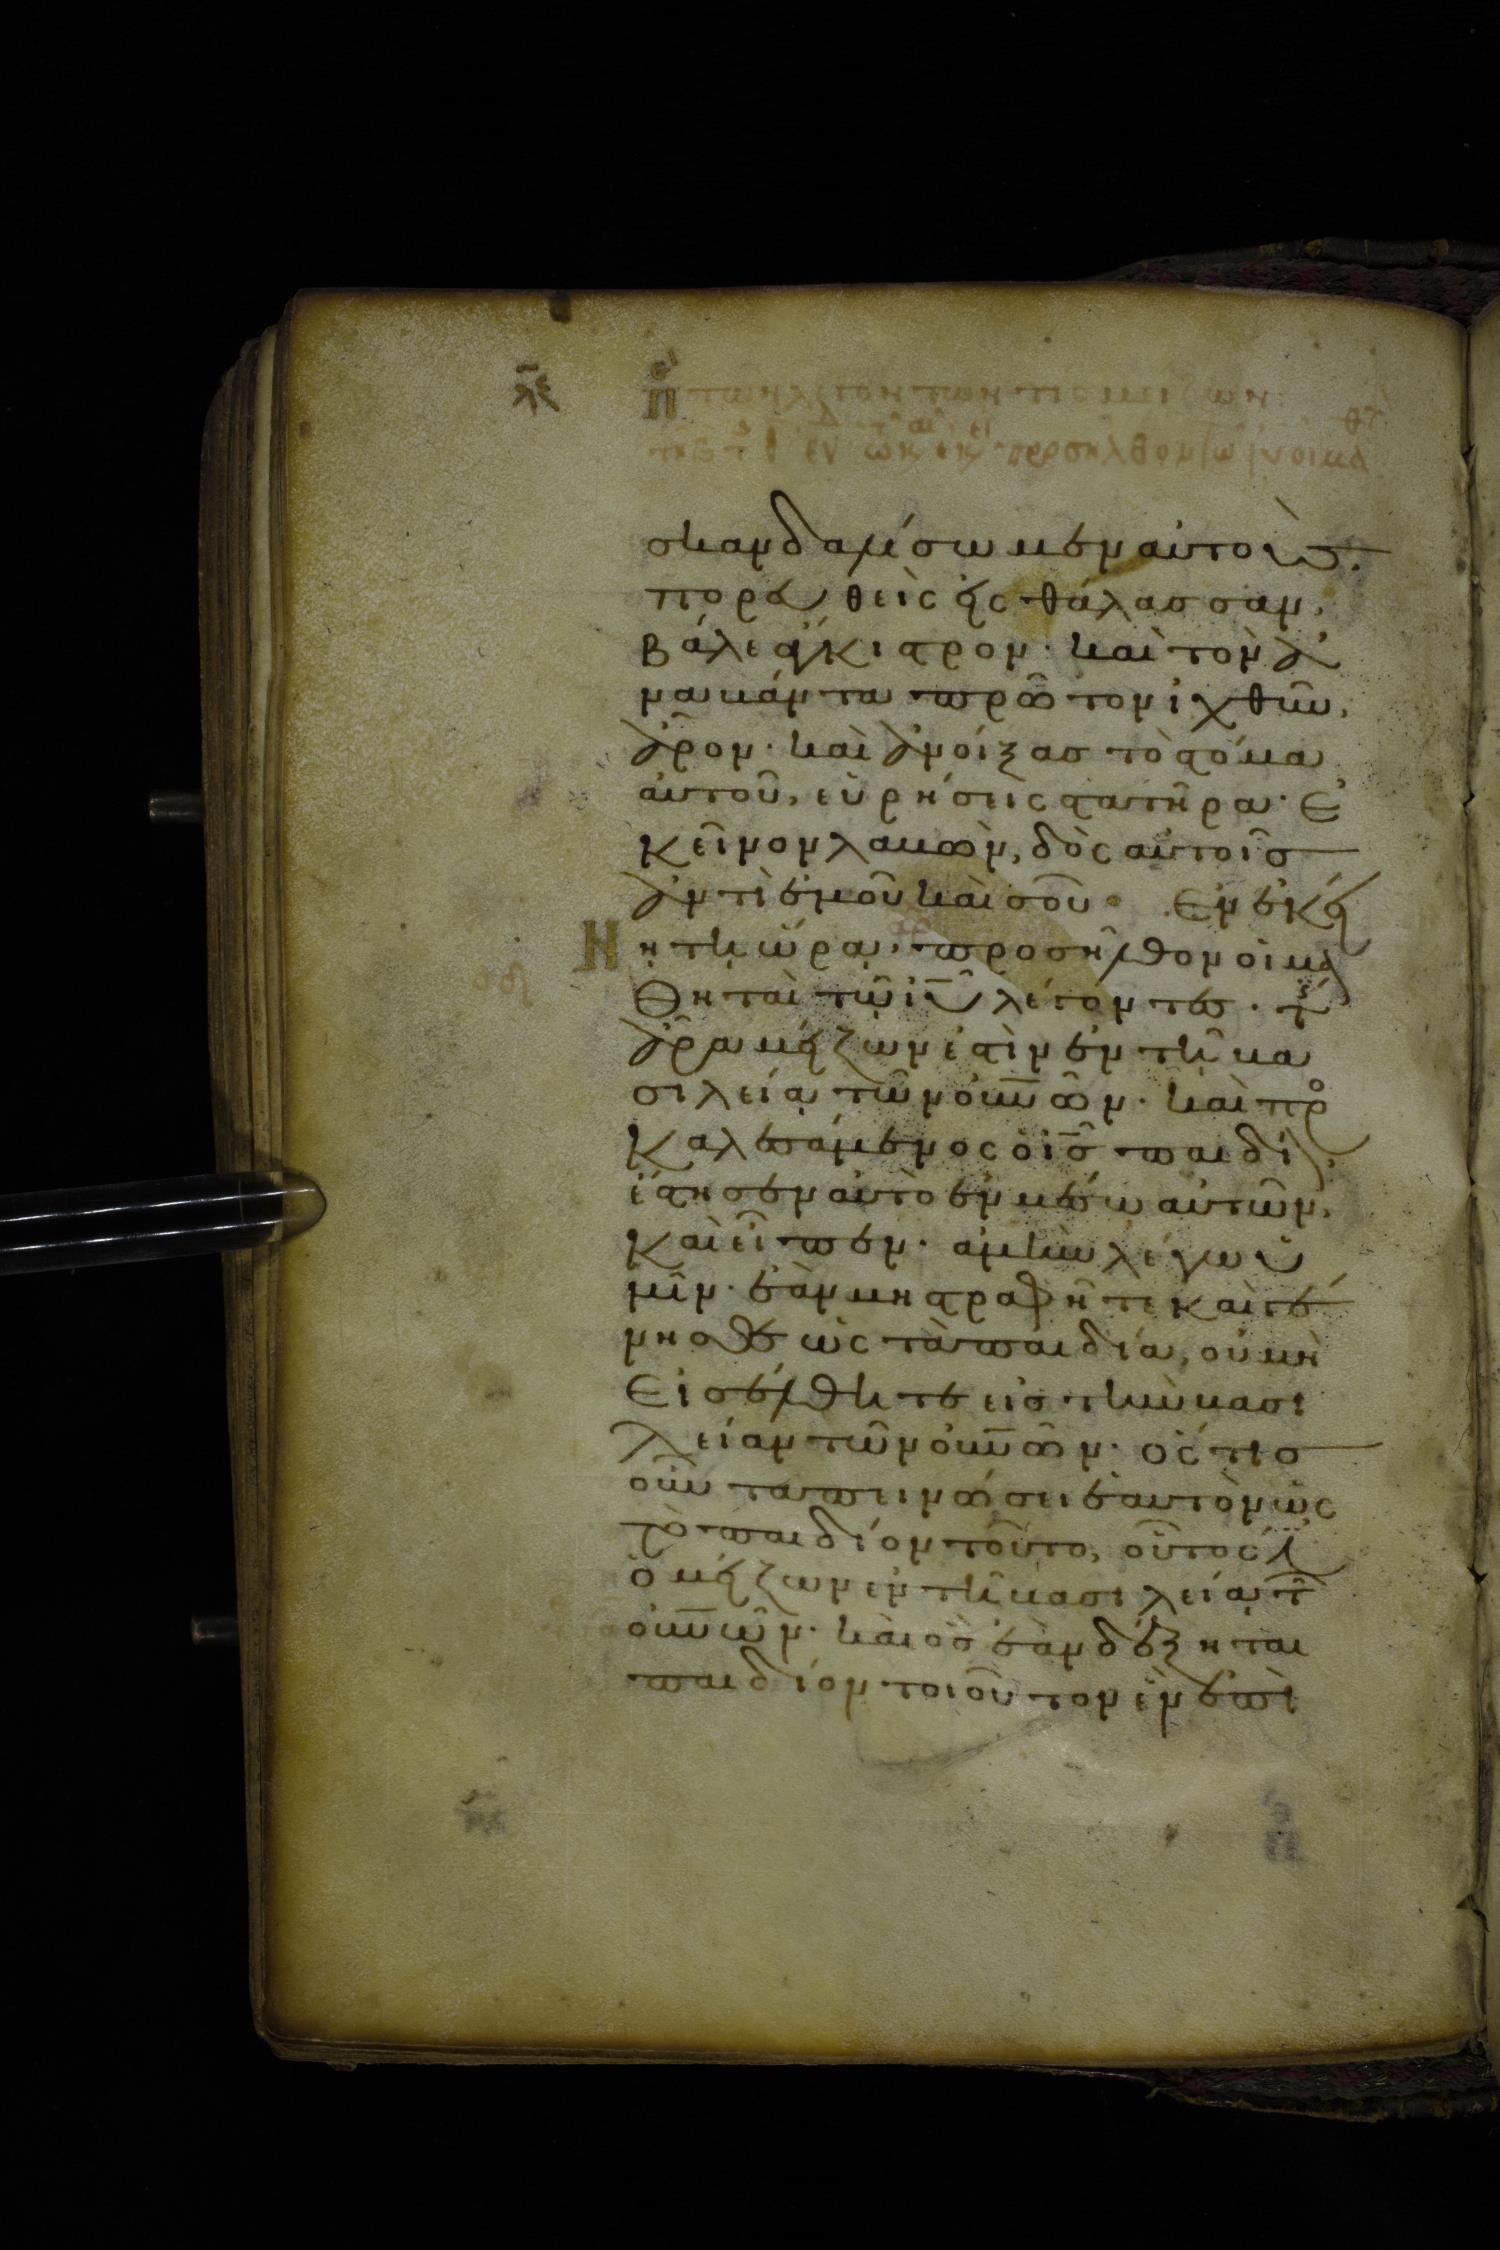 σκανδαλίσωμεν αὐτούς.
πορευθεὶς εἰς θάλασσαν,
βάλε ἄγκιστρον· καὶ τὸν ἀ
ναβάντα πρῶτον ἰχθῦν,
ἆρον· καὶ ἀνοίξας τὸ στόμα
αὐτοῦ, εὑρήσεις στατῆρα· ἐ
κεῖνον λαβὼν, δὸς αὐτοῖς
ἀντὶ ἐμοῦ καὶ σοῦ· Ἐν ἐκεί
νῃ τῇ ὥρᾳ, προσῆλθον οἱ μα
θηταὶ τῷ ἰῦ λέγοντες· τίς
ἆρα μείζων ἐστὶν ἐν τῇ βα
σιλείᾳ τῶν οὐνῶν· καὶ προ
καλεσάμενος ὁ ἰς παιδίον,
ἔστησεν αὐτὸ ἐν μέσω αὐτῶν,
καὶ εἶπεν· ἀμὴν λέγω ὑ
μῖν· ἐὰν μὴ στραφῆτε καὶ γέ
νησθε ὡς τὰ παιδία, οὐ μὴ
εἰσέλθητε εἰς τὴν βασι
λείαν τῶν οὐνῶν· ὅστις
οὖν ταπεινώσει ἑαυτὸν ὡς
τὸ παιδίον τοῦτο, οὗτός ἐστιν
ὁ μείζων ἐν τῇ βασιλείᾳ τῶν
οὐνῶν· καὶ ὃς ἐὰν δέξηται
παιδίον τοιοῦτον ἓν ἐπὶ